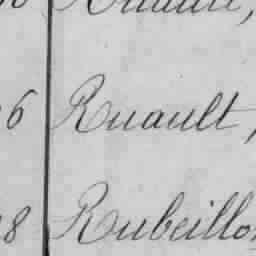 Ruault,
6 Ruault,
8 Rubeillo